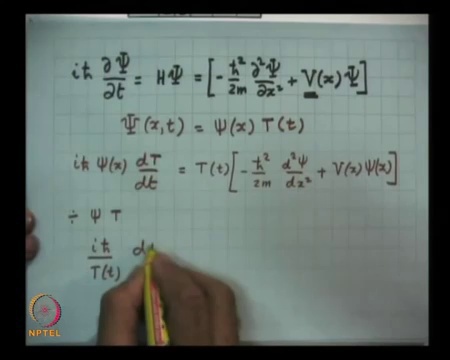 iħ ∂Ψ/∂t = HΨ = [-ħ²/2m ∂²Ψ/∂x² + V(x)Ψ]
Ψ(x,t) = ψ(x) T(t)
iħ ψ(x) dT/dt = T(t)[-ħ²/2m d²ψ/dx² + V(x)ψ(x)]
÷ ψ T
iħ/T(t) d
NPTEL